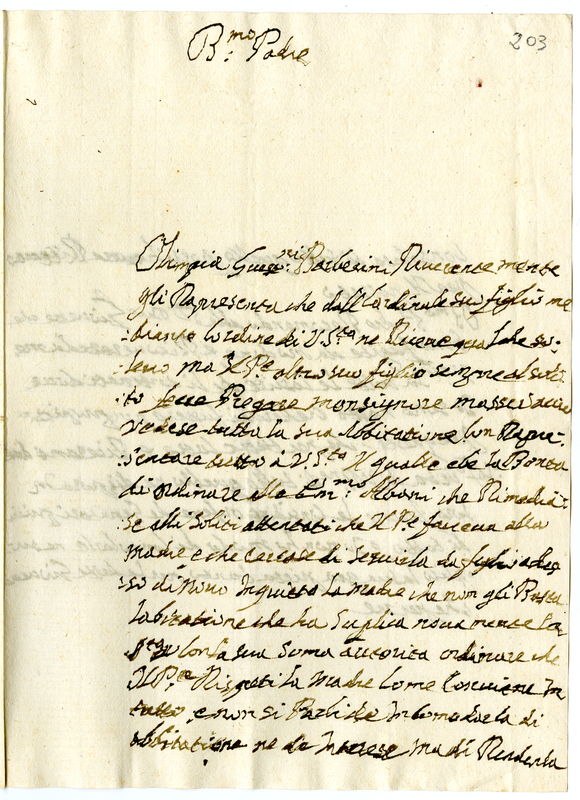 203
B.mo Padre
Olimpia Gius.ni Barberini Riverente mente
gli Rapresenta che dall Cardinale suo figlio me
:diante lordine di V. S.ta ne Riceve qualche so:
levo ma Il P.e altro suo figlio sempre al soli
to fece Pregare monsignore massei acciò
vedese tutta la sua Abbitatione Con Rapre:
:sentare tutto à V. S.ta Il qualle ebe la Bontà
di ordinare allo Em.mo Albani che Rimedia:
:se alli Soliti attentati che Il P.e faceva alla
madre e che cercase di Servirla da figlio ades
:so di novo Inquieta la madre che non gli Basta
labitatione che ha Suplica nova mente la
S.tà V. Con la sua Soma autorità ordinare che
Il P.e Rispeti la Madre Come Conviene In
tutto, e non si Parli de Incomodarla di
abbitatione ne de Interese ma di Renderla